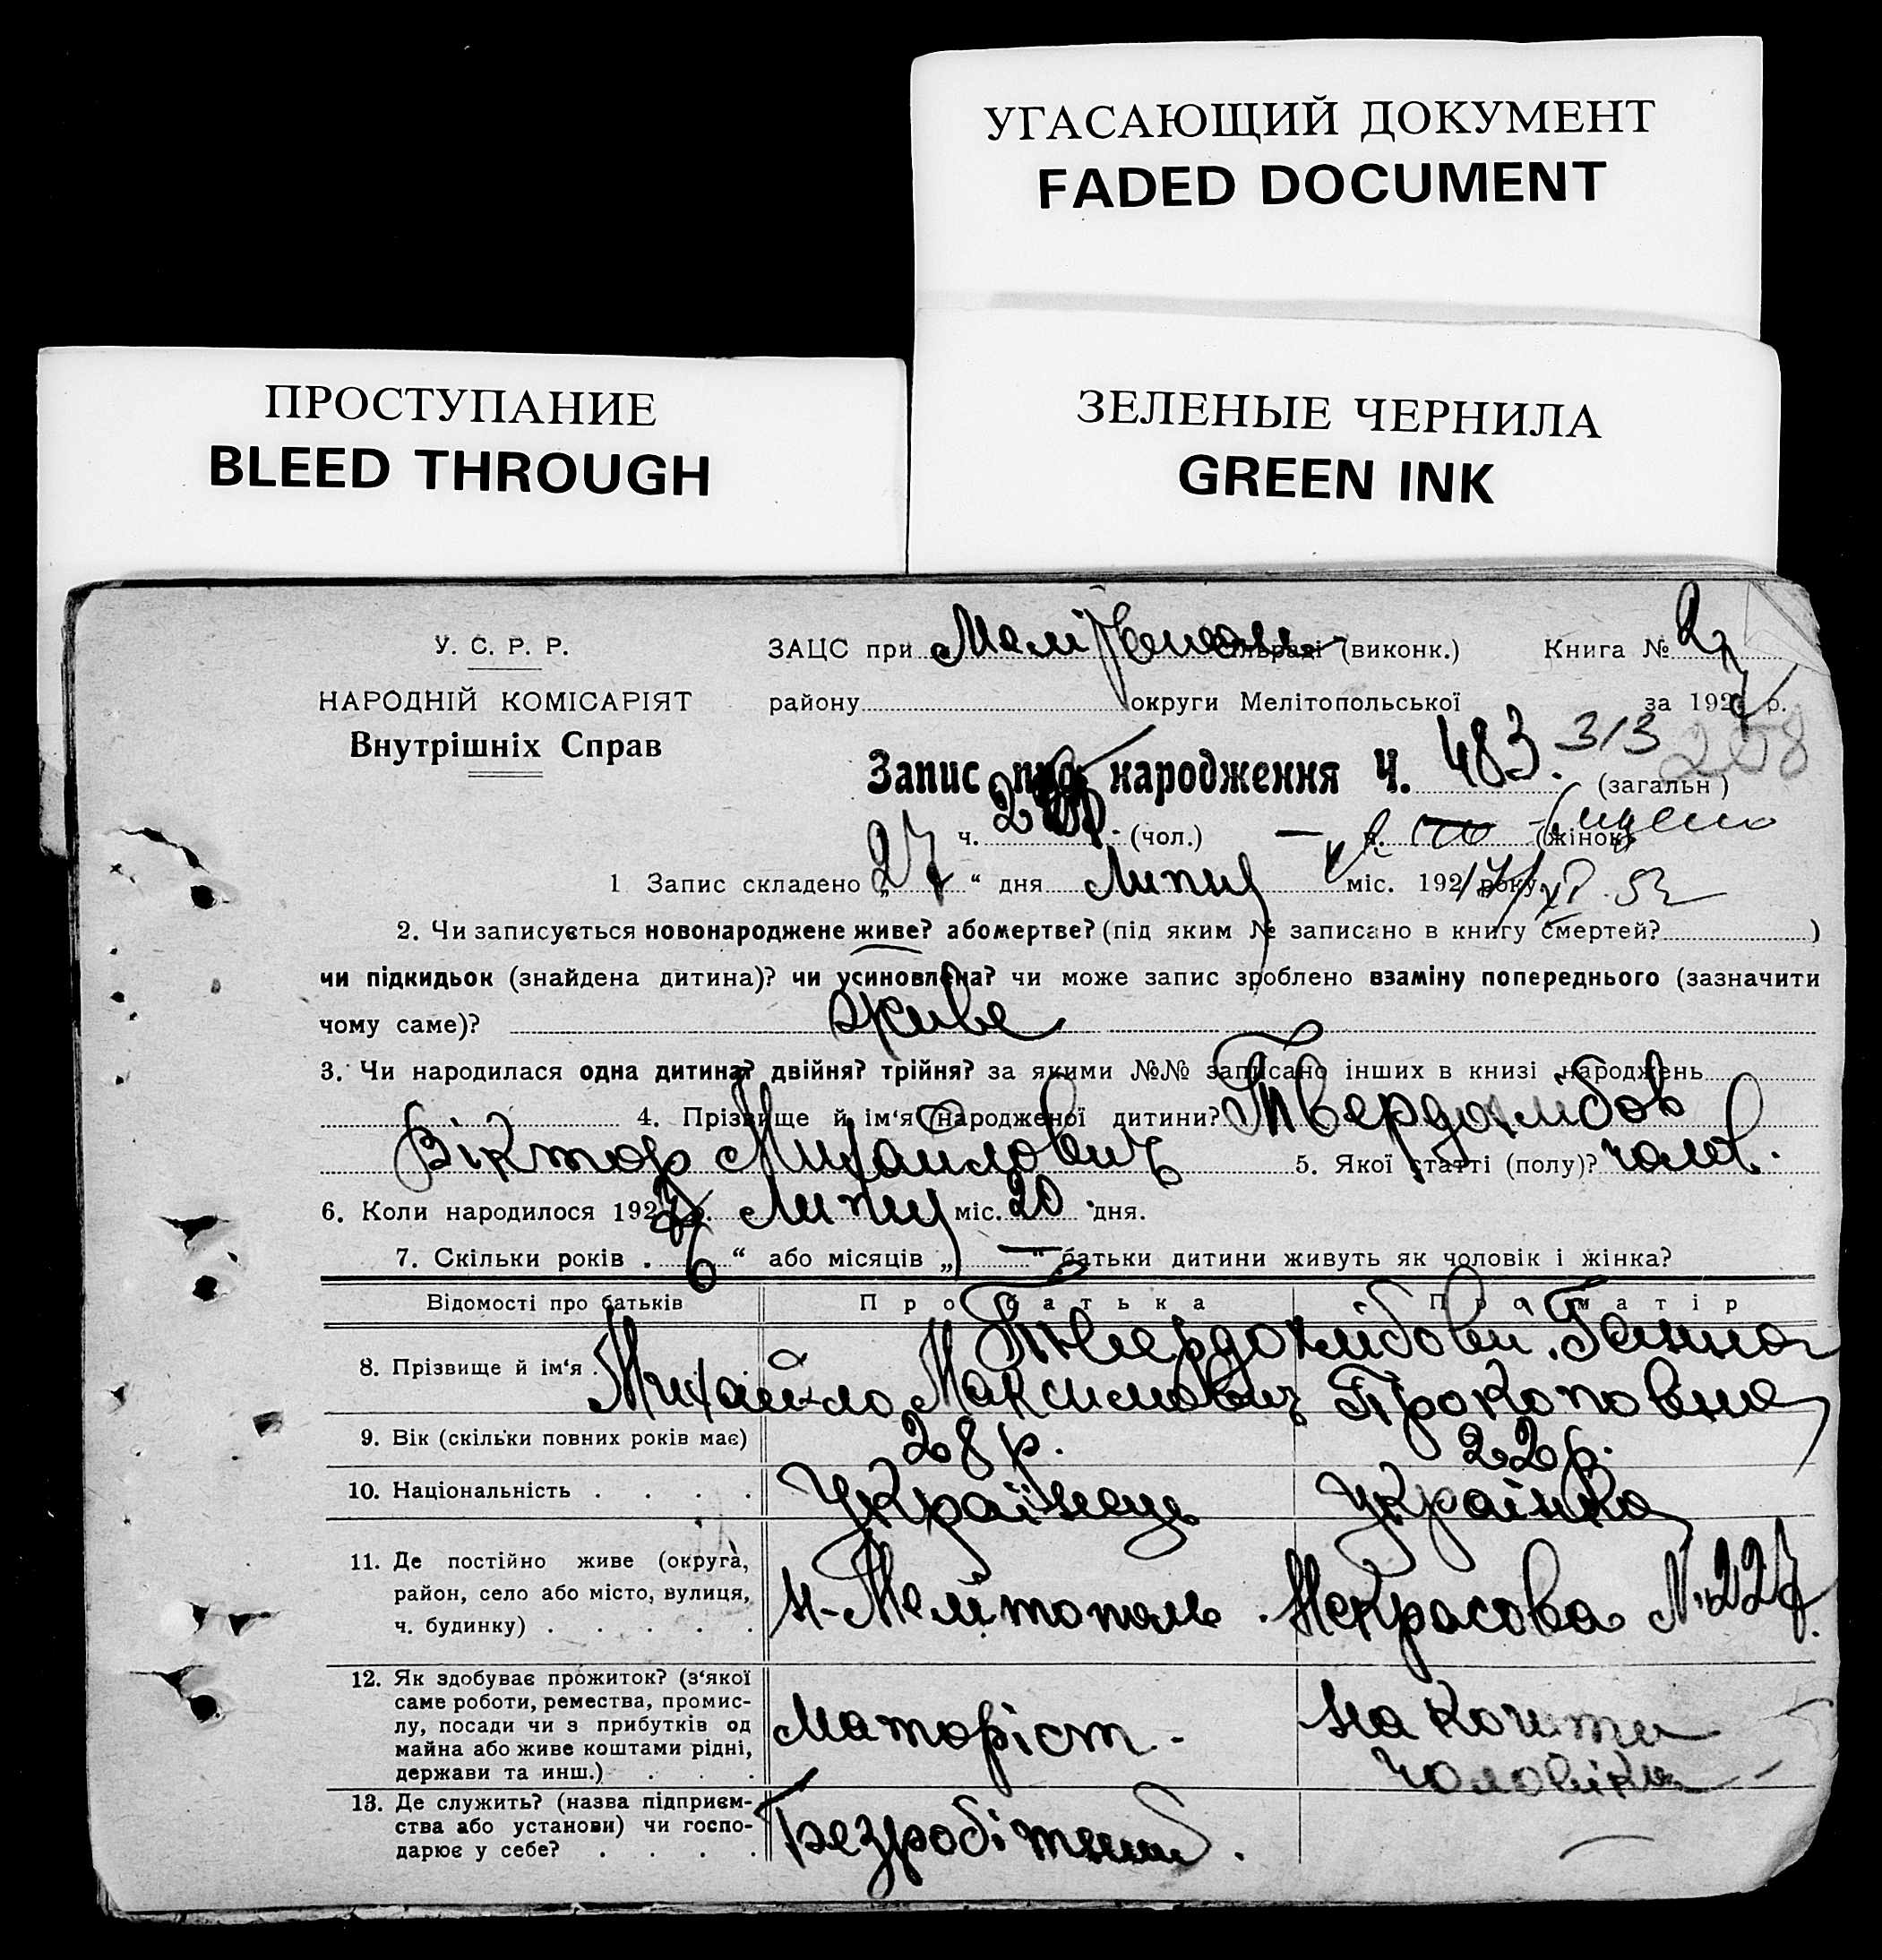 УГАСАЮЩИЙ ДОКУМЕНТ
FADED DOCUMENT
ПРОСТУПАНИЕ
BLEED THROUGH
ЗЕЛЕНЫЕ ЧЕРНИЛА
GREEN INK
У. С. Р. Р.
НАРОДНІЙ КОМІСАРІЯТ
Внутрішніх Справ
ЗАЦС при (виконк.) Книга №
району округи Мелітопольської за 1927 р.
Запис про народження Ч. 483. 313 208
(загальн)
ч. (чол.) — (жінок)
1 Запис складено „27“ дня Липця міс. 1927 року.
2. Чи записується новонароджене живе? або мертве? (під яким № записано в книгу смертей? )
чи підкидьок (знайдена дитина)? чи усиновлена? чи може запис зроблено взаміну попереднього (зазначити
чому саме)? живе
3. Чи народилася одна дитина? двійня? трійня? за якими №№ записано інших в книзі народжень
4. Прізвище й ім‘я народженої дитини? Твердохлібов
Віктор Михайлович 5. Якої статті (полу)? чолов.
6. Коли народилося 1927 р. Липця міс. 20 дня.
7. Скільки років „6“ або місяців „—“ батьки дитини живуть як чоловік і жінка?
Відомості про батьків Про батька Про матір
8. Прізвище й ім‘я . Твердохлібови. Ганна
Михайло Максимович Прокоповна
9. Вік (скільки повних років має) 28 р. 22 р.
10. Національність . . . . Українець Українка
11. Де постійно живе (округа,
район, село або місто, вулиця,
ч. будинку) . . . . . м-Мелітополь. Некрасова №227.
12. Як здобуває прожиток? (з‘якої
саме роботи, ремества, промис-
лу, посади чи з прибутків од
майна або живе коштами рідні,
держави та инш.) . . . Маторіст. На кошти
чоловіка
13. Де служить? (назва підприєм-
ства або установи) чи госпо-
дарює у себе? . . . . Безробітний. —